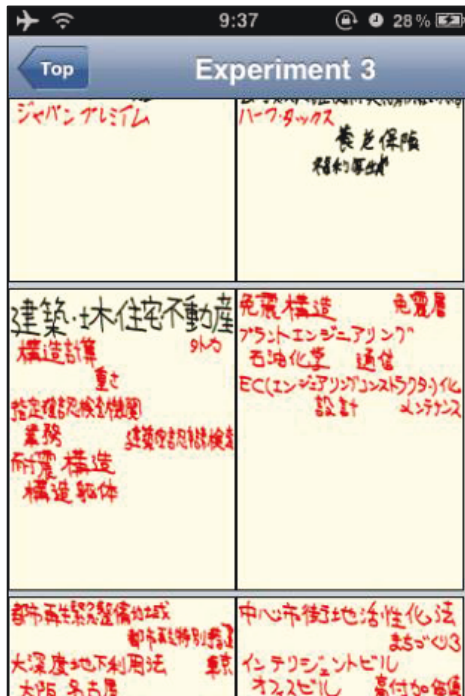 9:37
28%
Top
Experiment 3
ジャパンプレミアム
ハーフ・タックス
養老保険
福利厚生
建築・土木住宅不動産
構造計算 外力
重さ
指定確認検査機関
業務 建築確認
耐震構造
構造躯体
免震構造 免震層
プラントエンジニアリング
石油化学 通信
EC(エンジニアリングコンストラクター)化
設計 メンテナンス
都市再生緊急整備地域
大深度地下利用法 東京
大阪 名古屋
中心市街地活性化法
まちづくり3
インテリジェントビル
オフィスビル 高付加価値